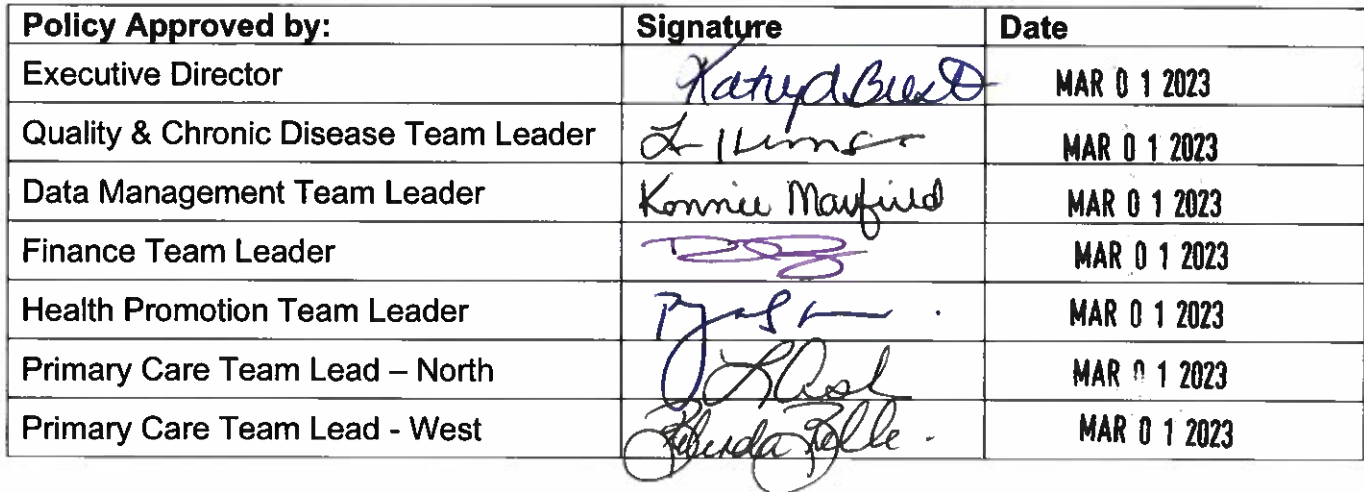 Policy Approved by: Signature Date
Executive Director MAR 0 1 2023
Quality & Chronic Disease Team Leader MAR 0 1 2023
Data Management Team Leader Konnie Mayfield MAR 0 1 2023
Finance Team Leader MAR 0 1 2023
Health Promotion Team Leader MAR 0 1 2023
Primary Care Team Lead – North MAR 0 1 2023
Primary Care Team Lead - West MAR 0 1 2023